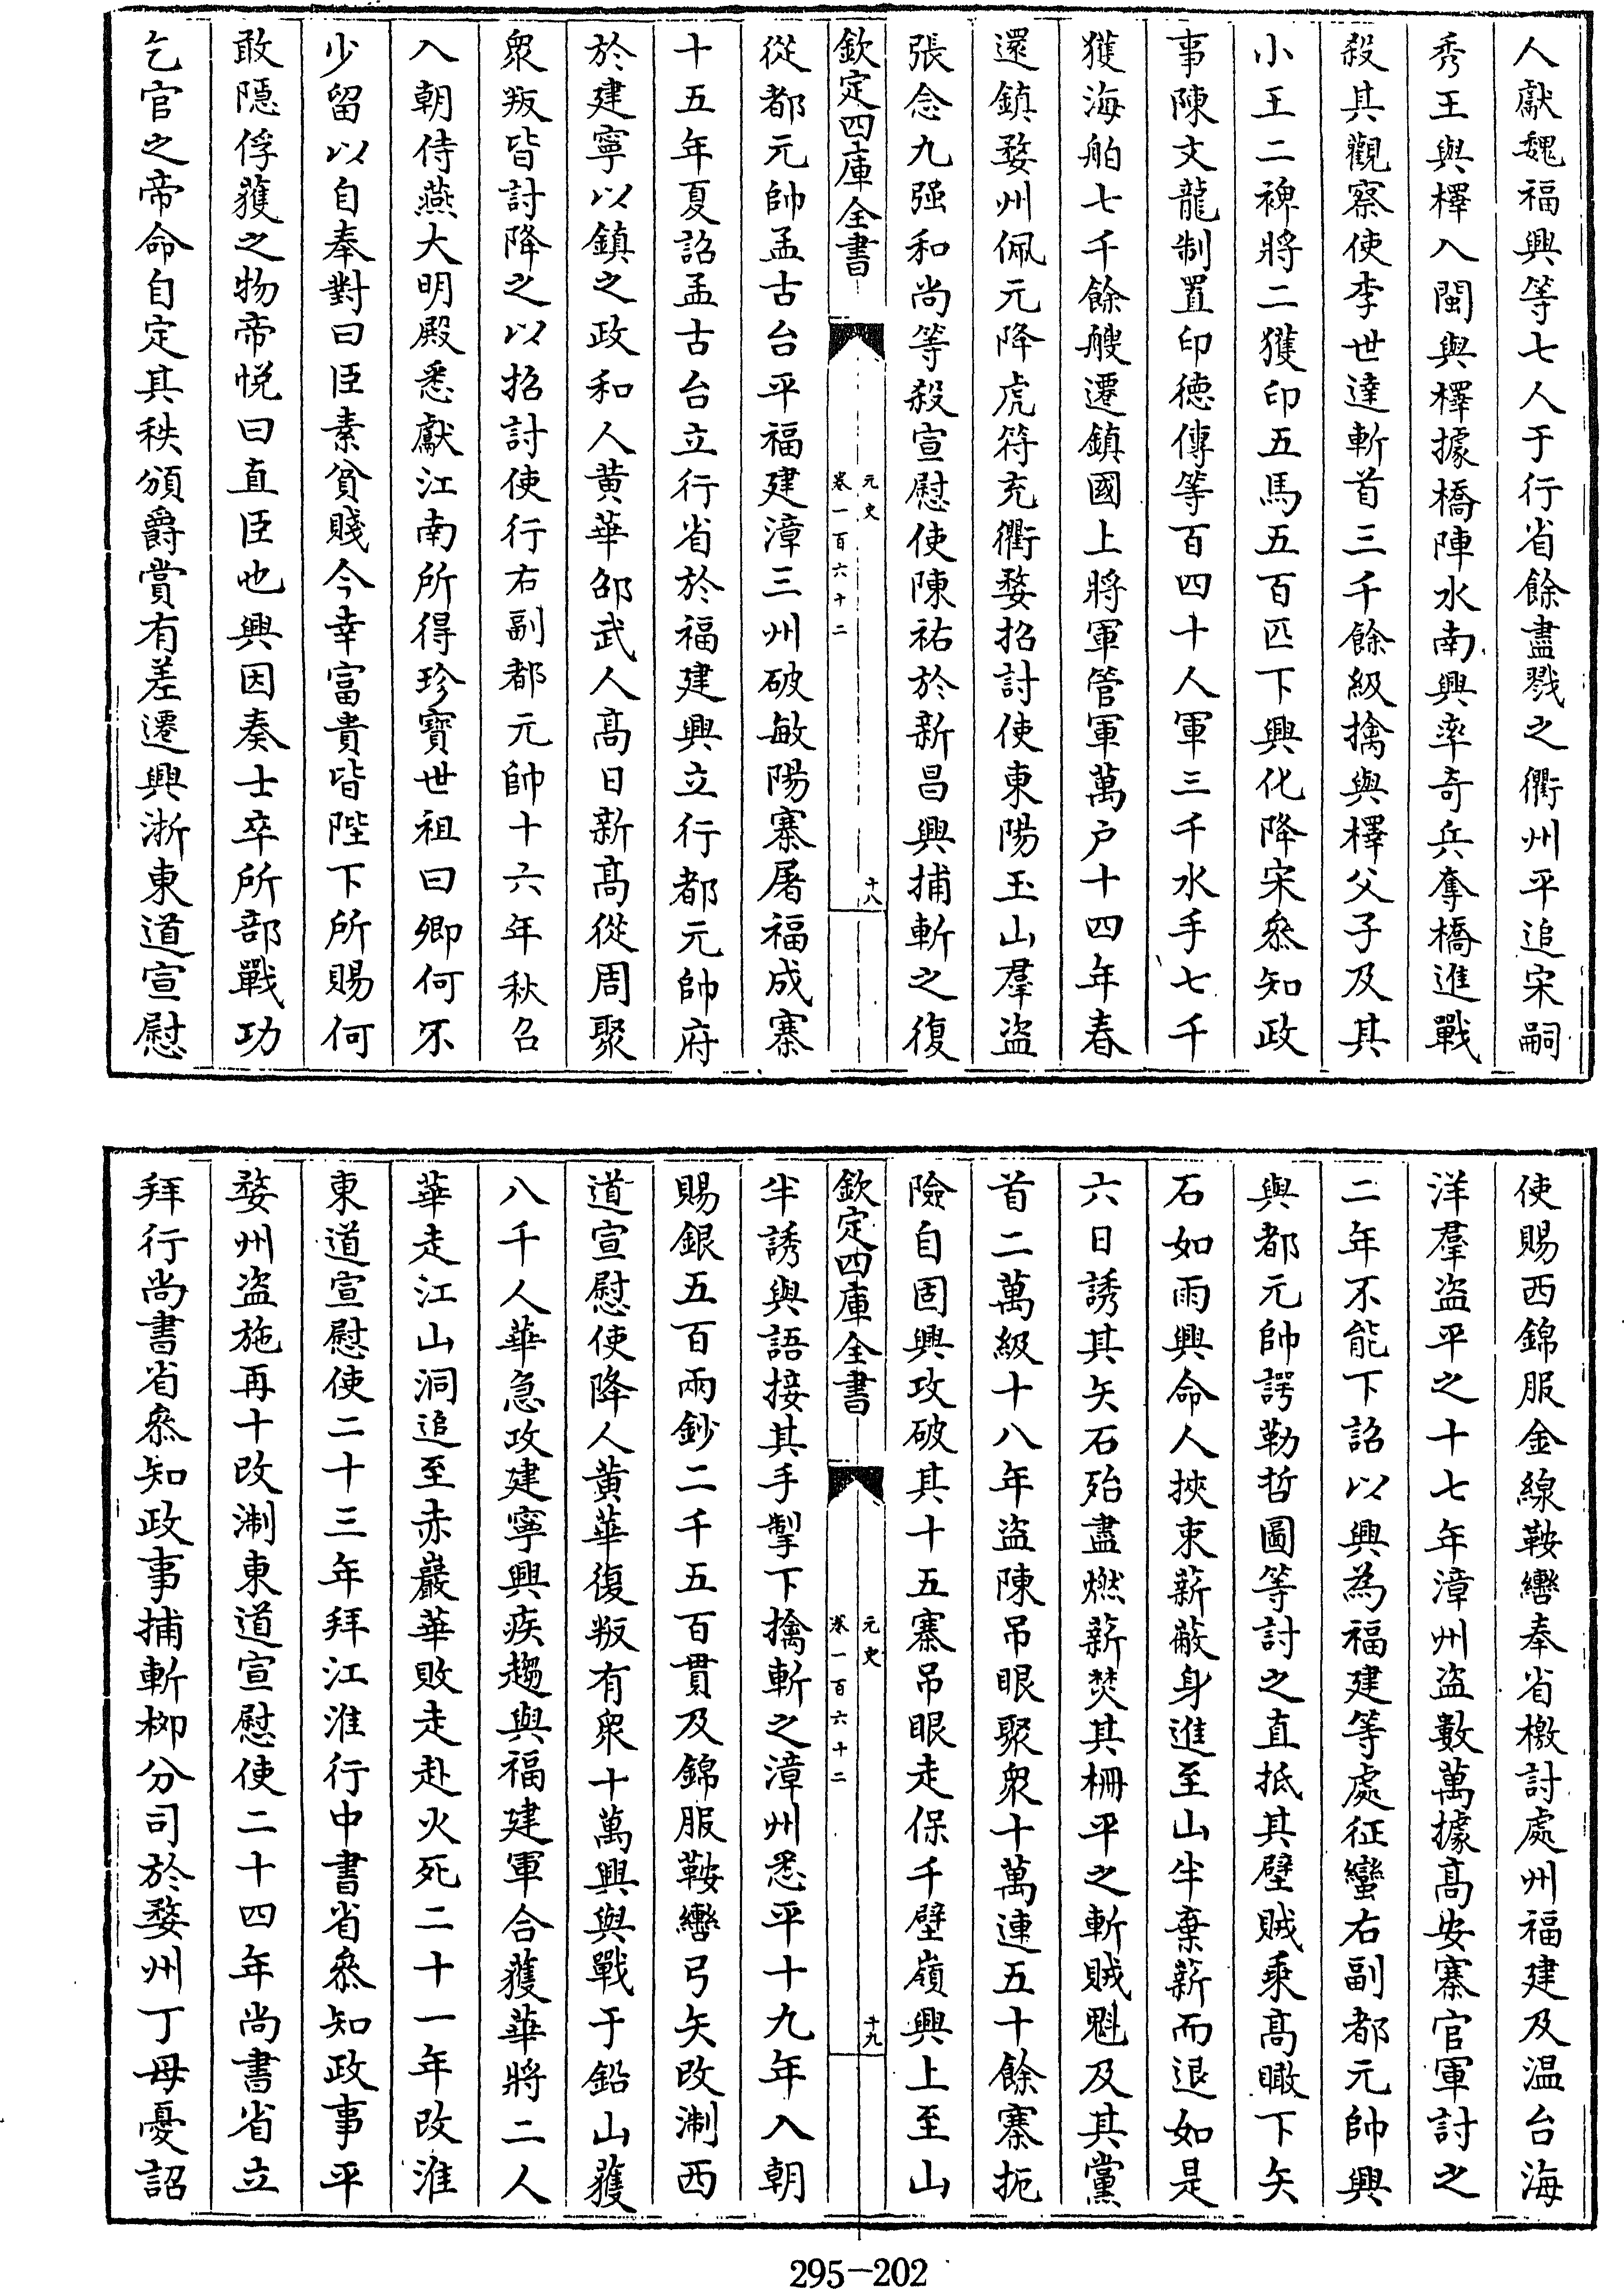 人獻魏福興等七人于行省餘盡戮之衢州平追宋嗣
秀王與檡入閩與檡據橋陣水南興率奇兵奪橋進戰
殺其觀察使李世達斬首三千餘級擒與檡父子及其
小王二裨將二獲印五馬五百匹下興化降宋叅知政
事陳文龍制置印德傳等百四十人軍三千水手七千
獲海舶七千餘艘遷鎮國上將軍管軍萬户十四年春
還鎮婺州佩元降虎符充衢婺招討使東陽玉山羣盗
張念九强和尚等殺宣慰使陳祐於新昌興捕斬之復
欽定四庫全書
元史
卷一百六十二
十八
從都元帥孟古台平福建漳三州破敏陽寨屠福成寨
十五年夏詔孟古台立行省於福建興立行都元帥府
於建寧以鎮之政和人黄華邵武人髙日新髙從周聚
衆叛皆討降之以招討使行右副都元帥十六年秋召
入朝侍燕大明殿悉獻江南所得珍寶世祖曰卿何不
少留以自奉對曰臣素貧賤今幸富貴皆陛下所賜何
敢隠俘獲之物帝悦曰直臣也興因奏士卒所部戰功
乞官之帝命自定其秩頒爵賞有差遷興浙東道宣慰
使賜西錦服金線鞍轡奉省檄討處州福建及温台海
洋羣盗平之十七年漳州盗數萬據髙安寨官軍討之
二年不能下詔以興為福建等處征蠻右副都元帥興
與都元帥諤勒哲圖等討之直抵其壁賊乘髙瞰下矢
石如雨興命人挾束薪蔽身進至山半棄薪而退如是
六日誘其矢石殆盡燃薪焚其柵平之斬賊魁及其黨
首二萬級十八年盗陳吊眼聚衆十萬連五十餘寨扼
險自固興攻破其十五寨吊眼走保千壁嶺興上至山
欽定四庫全書
元史
卷一百六十二
十九
半誘與語接其手掣下擒斬之漳州悉平十九年入朝
賜銀五百兩鈔二千五百貫及錦服鞍轡弓矢改淛西
道宣慰使降人黄華復叛有衆十萬興與戰于鉛山獲
八千人華急攻建寧興疾趨與福建軍合獲華將二人
華走江山洞追至赤巖華敗走赴火死二十一年改淮
東道宣慰使二十三年拜江淮行中書省叅知政事平
婺州盗施再十改淛東道宣慰使二十四年尚書省立
拜行尚書省叅知政事捕斬栁分司於婺州丁母憂詔
295-202